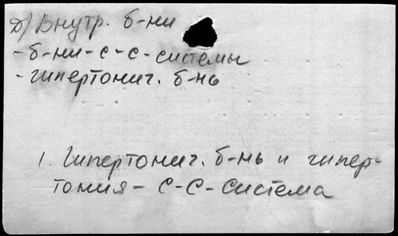 д) Внутр. б-ни
- б-ни - с-с-системы
- гипертонич. б-нь
1. Гипертонич. б-нь и гипер-
тония - с-с-система